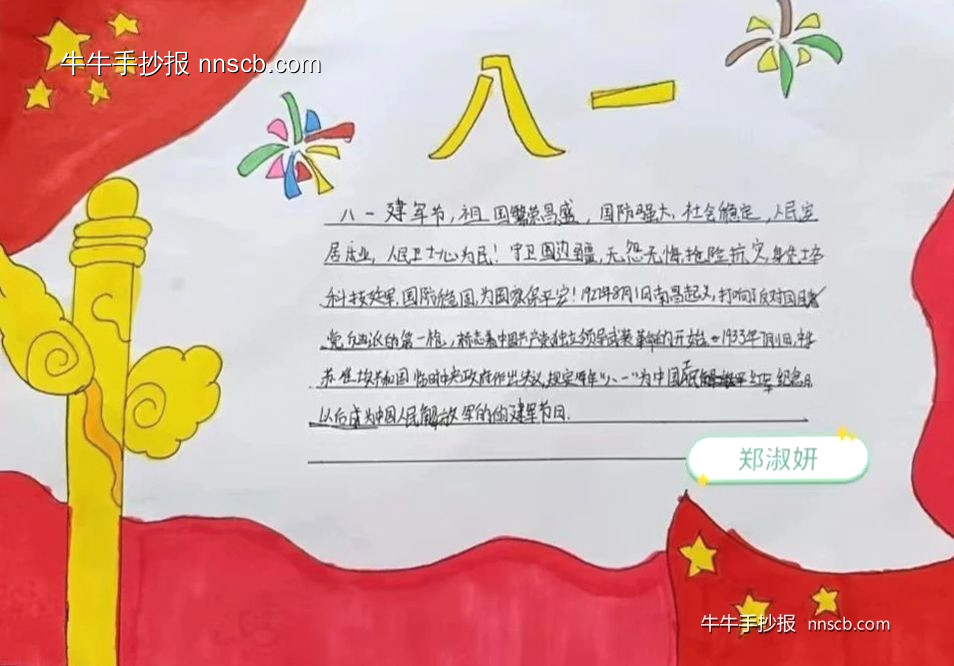 牛牛手抄报 nnscb.com
八一
八一建军节，祖国繁荣昌盛，国防强大，社会稳定，人民安
居乐业，人民卫士心为民！守卫国边疆，无怨无悔抢险抗灾，身先士卒
科技效军，国防稳固，为国家保平安！1927年8月1日南昌起义，打响了反对国民
党反动派的第一枪，标志着中国共产党独立领导武装革命的开始。1933年7月1日，中华
苏维埃共和国临时中央政府作出决议，规定每年“八一”为中国 红军纪念日
以后成为中国人民解放军的 建军节日.
郑淑妍
牛牛手抄报 nnscb.com